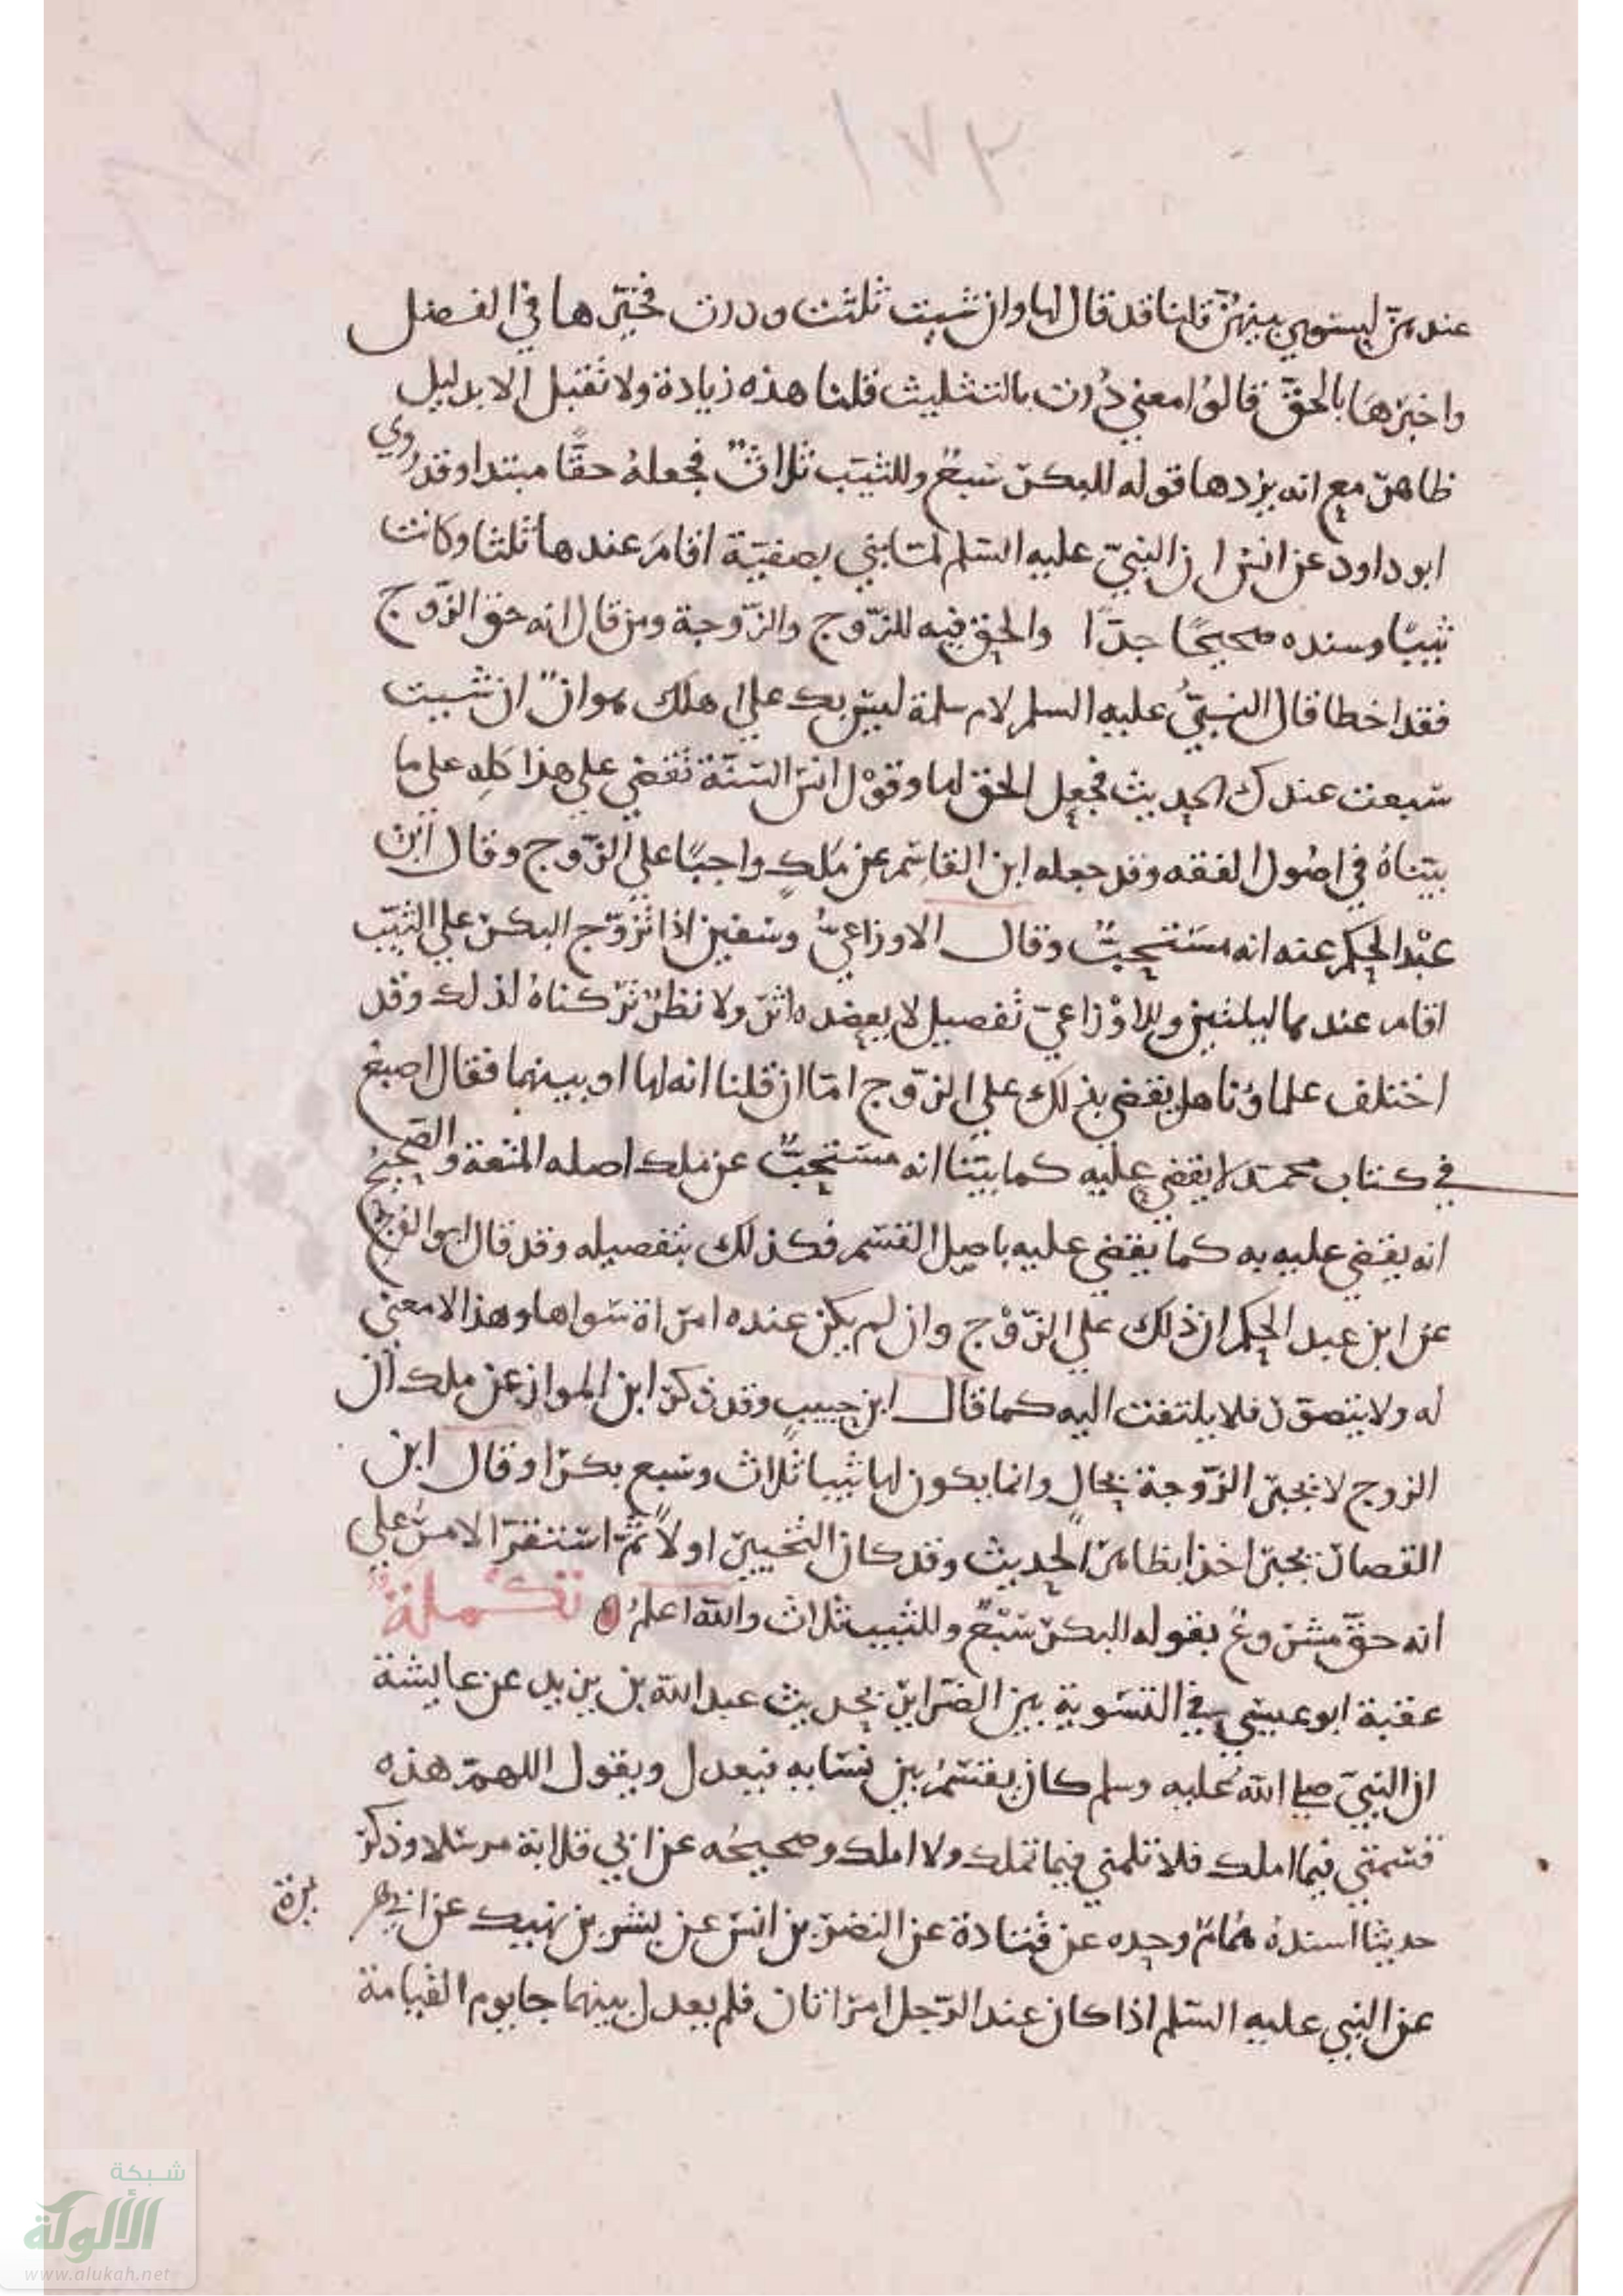 ١٧٣
عندهن ليستوي بينهن قلنا قد قال لها وان شيت ثلثت ودرت فخيرها في الفضل
واخبرها بالحق قالوا معنى درت بالتثليث قلنا هذه زيادة ولا تقبل الا بدليل
ظاهر مع انه يردها قوله للبكر سبع وللثيب ثلاث فجعله حقا مبتدا وقد روي
ابو داود عن انس ان النبي عليه السلم لما بني بصفية اقام عندها ثلثا وكانت
ثيبا وسنده صحيحا جدا والحق فيه للزوج والزوجة ومن قال انه حق الزوج
فقد اخطا قال النبي عليه السلم لام سلمة ليس بك علي اهلك هوان ان شيت
سبعت عندك الحديث فجعل الحق لها وقول انس السنة تقضي علي هذا كله علي ما
بيناه في اصول الفقه وقد جعله ابن القاسم عن ملك واجبا علي الزوج وقال ابن
عبد الحكم عنه انه مستحب وقال الاوزاعي وسفين اذا تزوج البكر علي الثيب
اقام عندها ليلتين وللاوزاعي تفصيل لا يعضده اثر ولا نظر تركناه لذلك وقد
اختلف علماؤنا هل يقضي بذلك علي الزوج اما ان قلنا انه لها او بينهما فقال اصبغ
في كتاب محمد لا يقضي عليه كما بينا انه مستحب عن ملك اصله المتعة والصحيح
انه يقضي عليه به كما يقضي عليه باصل القسم فكذلك بتفصيله وقد قال ابو الفرج
عن ابن عبد الحكم ان ذلك علي الزوج وان لم يكن عنده امراة سواها وهذا لا معنى
له ولا يتصور فلا يلتفت اليه كما قال ابن حبيب وقد ذكر ابن المواز عن ملك ان
الزوج لا يخير الزوجة بحال وانما يكون لها ثيبا ثلاث وسبع بكرا وقال ابن
القصار يخير اخذا بظاهر الحديث وقد كان التخيير اولا ثم استقر الامر علي
انه حق مشروع بقوله للبكر سبع وللثيب ثلاث والله اعلم تكملة
عقبة ابو عيسي في التسوية بين الضراير بحديث عبد الله بن يزيد عن عايشة
ان النبي صلي الله عليه وسلم كان يقسم بين نسايه فيعدل ويقول اللهم هذه
قسمتي فيما املك فلا تلمني فيما تملك ولا املك وصحيحه عن ابي قلابة مرسلا وذكر
حديثا اسنده همام وحده عن قتادة عن النضر بن انس عن بشر بن نهيك عن ابي هر
يرة
عن النبي عليه السلم اذا كان عند الرجل امراتان فلم يعدل بينهما جا يوم القيامة
شبكة
الألوكة
www.alukah.net